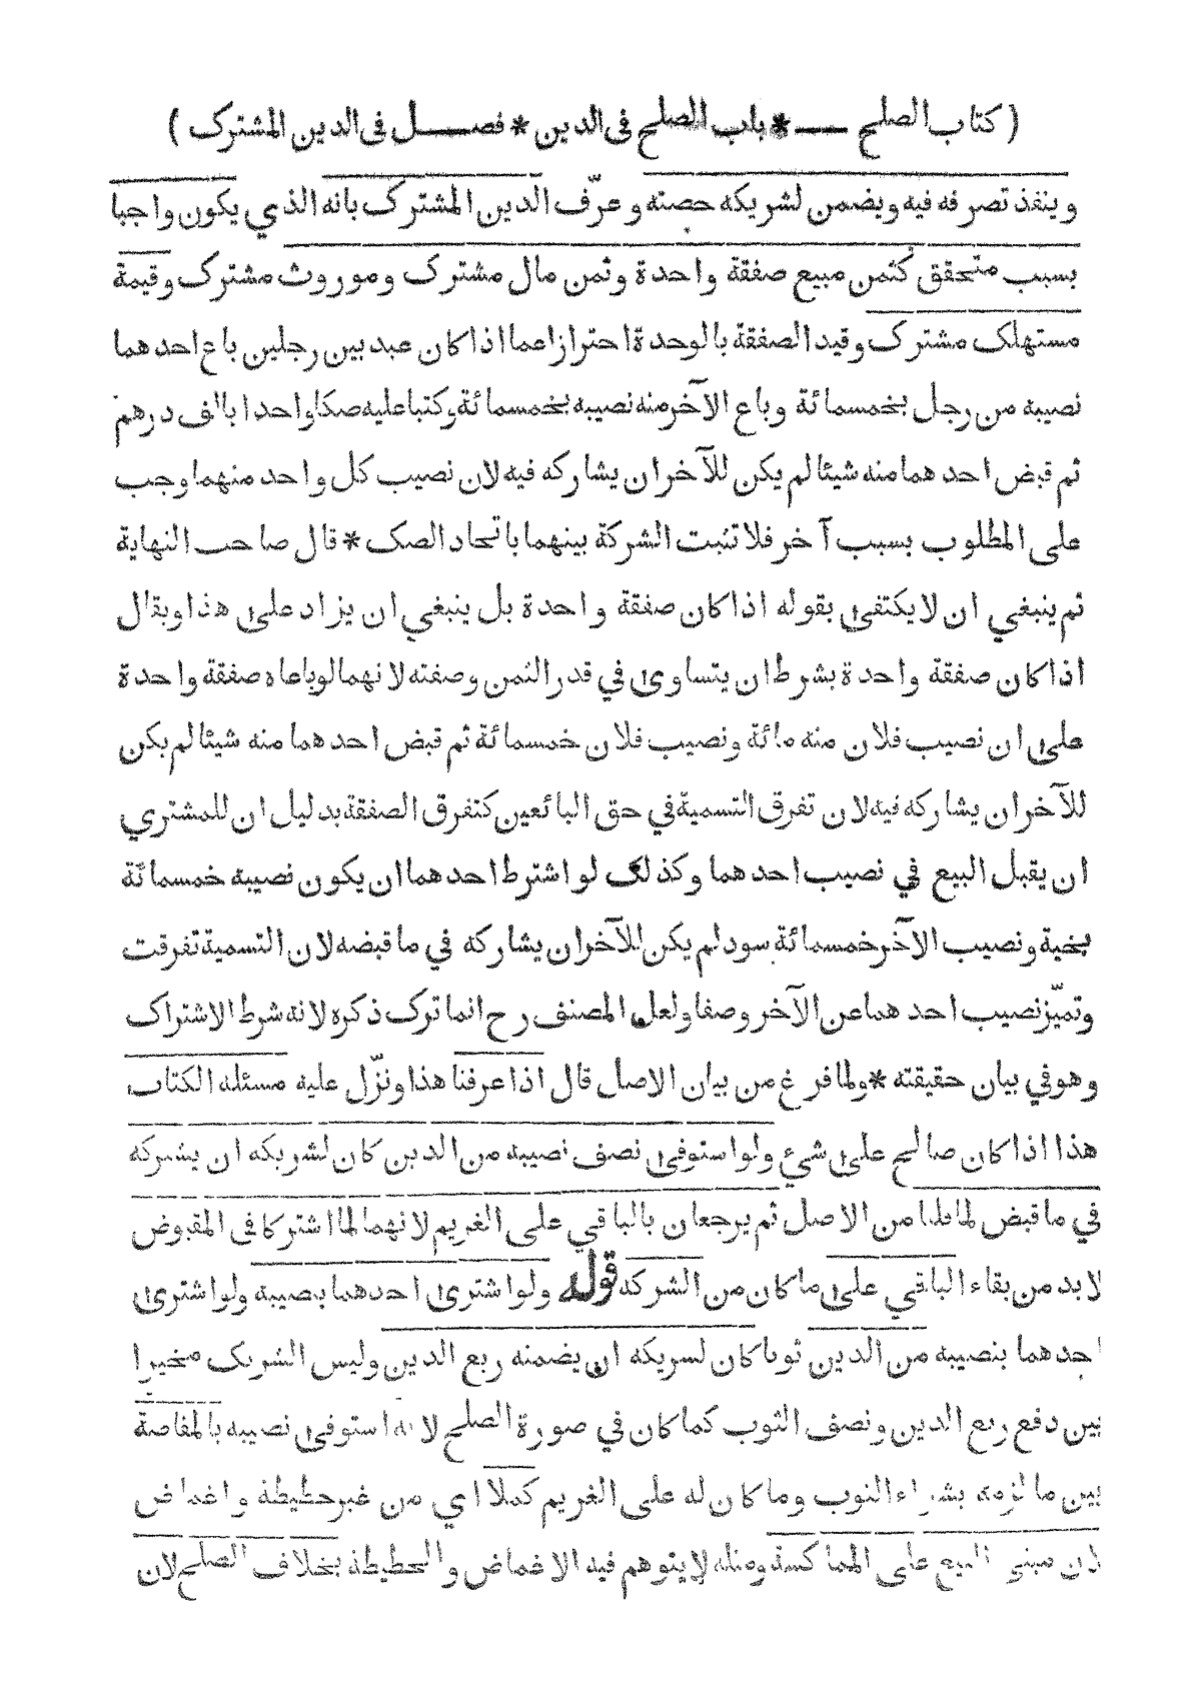 ( كتاب الصلح — * باب الصلح فى الدين * فصل فى الدين المشترك )
وينفذ تصرفه فيه ويضمن لشريكه حصته وعرّف الدين المشترك بانه الذي يكون واجبا
بسبب متحقق كثمن مبيع صفقة واحدة وثمن مال مشترك وموروث مشترك وقيمة
مستهلك مشترك وقيد الصفقة بالوحدة احترازا عما اذا كان عبد بين رجلين باع احدهما
نصيبه من رجل بخمسمائة وباع الآخر منه نصيبه بخمسمائة وكتبا عليه صكا واحدا بالف درهم
ثم قبض احدهما منه شيئا لم يكن للآخر ان يشاركه فيه لان نصيب كل واحد منهما وجب
على المطلوب بسبب آخر فلا تثبت الشركة بينهما باتحاد الصك * قال صاحب النهاية
ثم ينبغي ان لا يكتفى بقوله اذا كان صفقة واحدة بل ينبغي ان يزاد على هذا ويقال
اذا كان صفقة واحدة بشرط ان يتساوى في قدر الثمن وصفته لانهما لو باعاه صفقة واحدة
على ان نصيب فلان منه مائة ونصيب فلان خمسمائة ثم قبض احدهما منه شيئا لم يكن
للآخر ان يشاركه فيه لان تفرق التسمية في حق البائعين كتفرق الصفقة بدليل ان للمشتري
ان يقبل البيع في نصيب احدهما وكذلك لو اشترط احدهما ان يكون نصيبه خمسمائة
بخية ونصيب الآخر خمسمائة سود لم يكن للآخر ان يشاركه في ما قبضه لان التسمية تفرقت
وتميّز نصيب احدهما عن الآخر وصفا ولعل المصنف رح انما ترك ذكره لانه شرط الاشتراك
وهو في بيان حقيقته * ولما فرغ من بيان الاصل قال اذا عرفنا هذا ونزّل عليه مسئلة الكتاب
هذا اذا كان صالح على شيء ولو استوفى نصف نصيبه من الدين كان لشريكه ان يشركه
في ما قبض لما قلنا من الاصل ثم يرجعان بالباقي على الغريم لانهما لما اشتركا فى المقبوض
لا بد من بقاء الباقي على ما كان من الشركة قوله ولو اشترى احدهما بصيبه ولو اشترى
احدهما بنصيبه من الدين ثوبا كان لشريكه ان يضمنه ربع الدين وليس الشريك مخيرا
بين دفع ربع الدين ونصف الثوب كما كان في صورة الصلح لانه استوفى نصيبه بالمقاصة
بين ما لزمه بشراء الثوب وما كان له على الغريم كملا اي من غير حطيطة واغماض
لان مبنى البيع على المماكسة ومثله لا يتوهم فيه الاغماض والحطيطة بخلاف الصلح لان